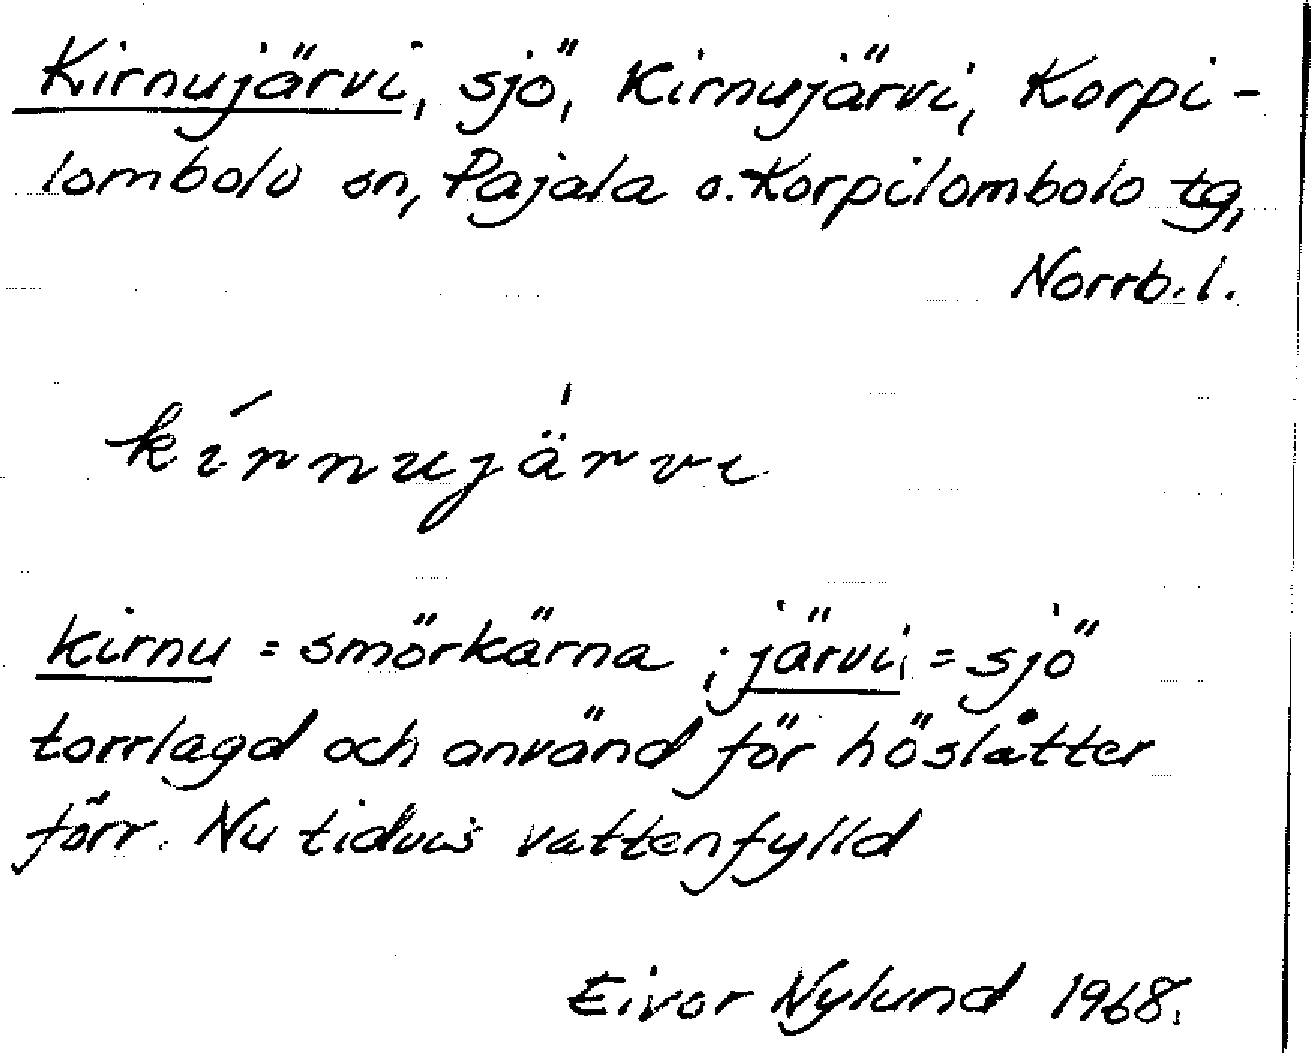 Kirnujärvi, sjö, Kirnujärvi, Korpi-
lombolo sn, Pajala o. Korpilombolo tg,
Norrb. l.
kírnujärvi
kirnu = smörkärna ; järvi, = sjö
torrlagd och använd för höslåtter
förr. Nu tidvis vattenfylld
Eivor Nylund 1968.